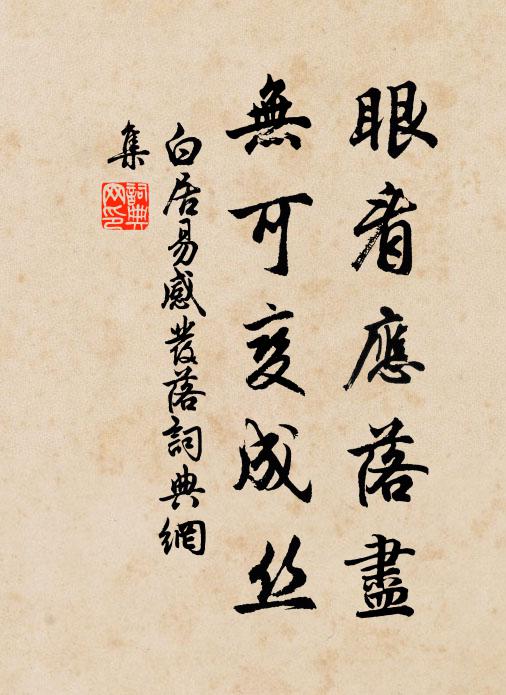 眼看應落盡
無可变成丝
白居易感发落詞典網
集
詞典
网印